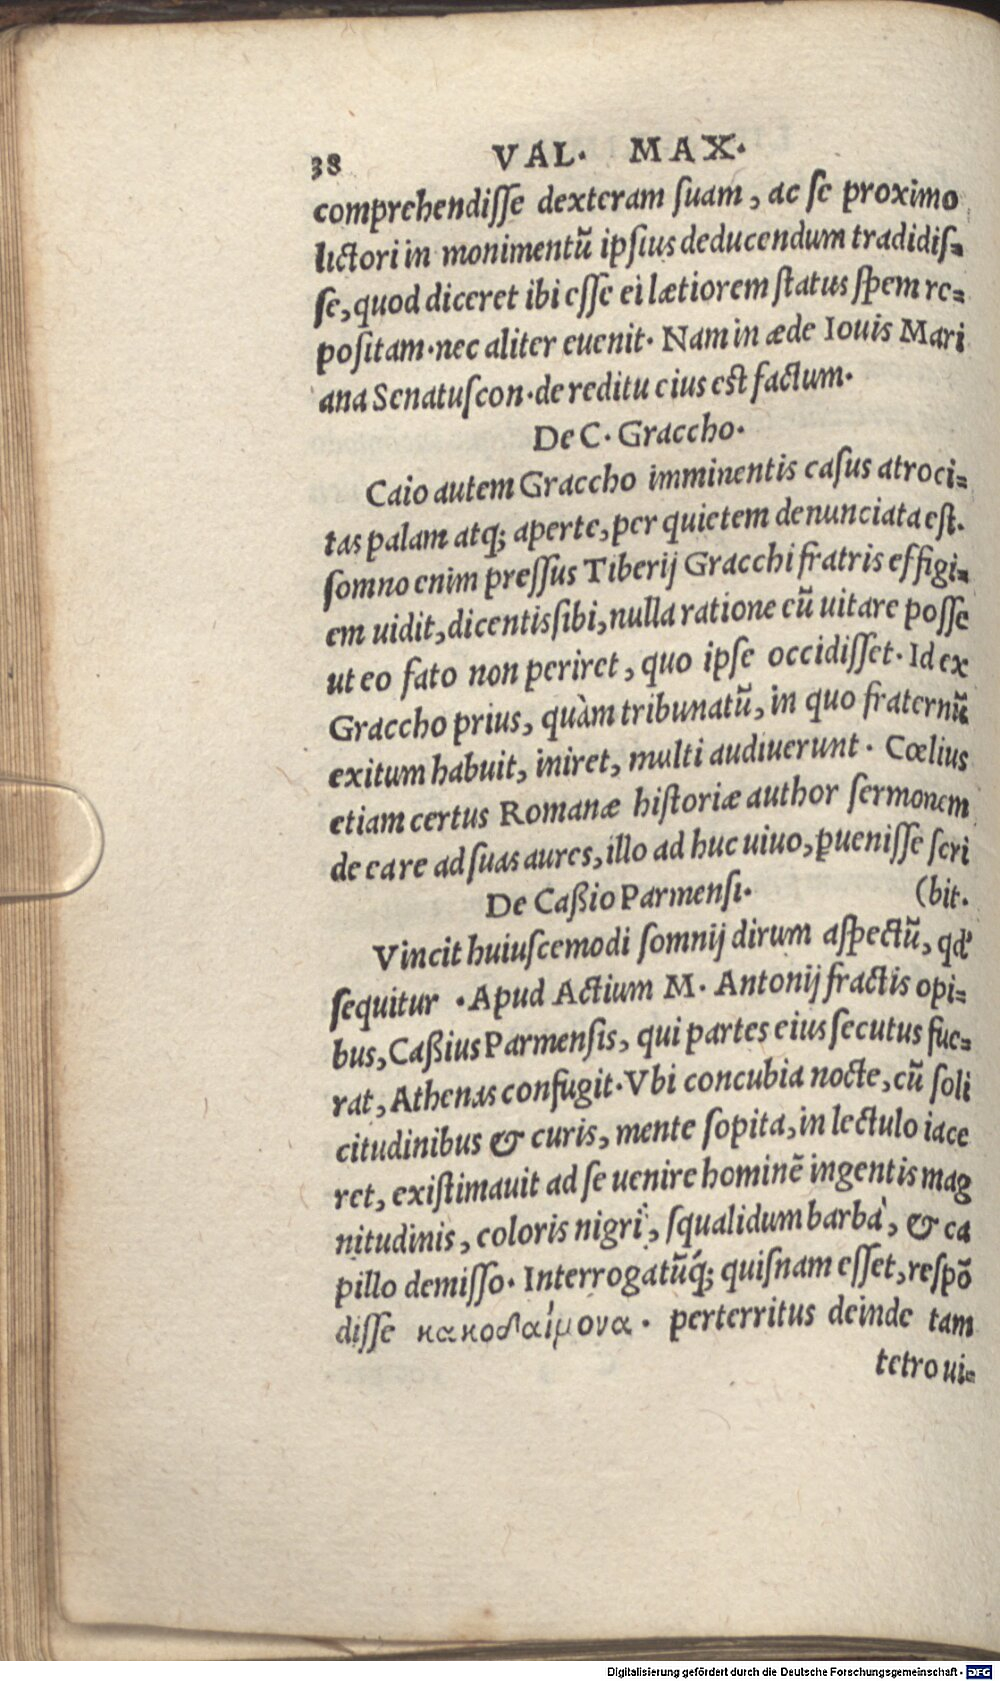 38 VAL. MAX.
comprehendisse dexteram suam, ac se proximo
lictori in monimentũ ipsius deducendum tradidis-
se, quod diceret ibi esse ei lætiorem status spem re-
positam. nec aliter euenit. Nam in æde Iouis Mari
ana Senatuscon. de reditu eius est factum.
De C. Graccho.
Caio autem Graccho imminentis casus atroci-
tas palam atq; aperte, per quietem denunciata est.
somno enim pressus Tiberij Gracchi fratris effigi-
em uidit, dicentis sibi, nulla ratione eũ uitare posse
ut eo fato non periret, quo ipse occidisset. Id ex
Graccho prius, quàm tribunatũ, in quo fraternũ
exitum habuit, iniret, multi audiuerunt. Cœlius
etiam certus Romanæ historiæ author sermonem
de ea re ad suas aures, illo ad huc uiuo, ꝑuenisse scri
De Caßio Parmensi. (bit.
Vincit huiuscemodi somnij dirum aspectũ, qd'
sequitur . Apud Actium M. Antonij fractis opi-
bus, Caßius Parmensis, qui partes eius secutus fue-
rat, Athenas confugit. Vbi concubia nocte, cũ soli
citudinibus & curis, mente sopita, in lectulo iace
ret, existimauit ad se uenire hominẽ ingentis mag
nitudinis, coloris nigri, squalidum barbà, & ca
pillo demisso. Interrogatũq́; quisnam esset, respõ
disse κακοδαίμονα. perterritus deinde tam
tetro ui-
Digitalisierung gefördert durch die Deutsche Forschungsgemeinschaft - DFG